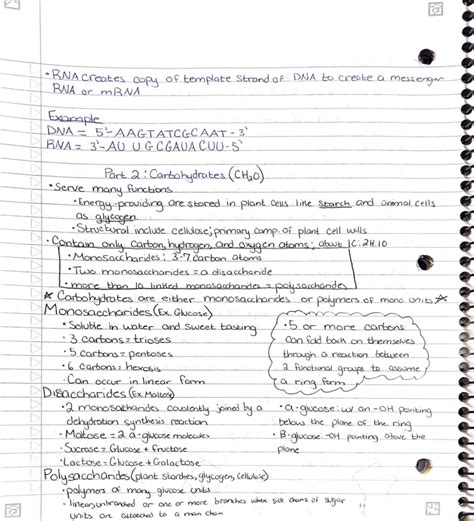 • RNA creates copy of template strand of DNA to create a messenger
RNA or mRNA
Example
DNA = 5'-AAGTATCGCAAT-3'
RNA = 3'-AUUGCGAUACUU-5'
Part 2: Carbohydrates (CH2O)
• Serve many functions
• Energy-providing are stored in plant cells like starch and animal cells
as glycogen
• Structural include cellulose; primary comp. of plant cell walls
• Contain only carbon, hydrogen, and oxygen atoms; about 1C:2H:1O
• Monosaccharides: 3-7 carbon atoms
• Two monosaccharides = a disaccharide
• more than 10 linked monosaccharides = polysaccharides
★ Carbohydrates are either monosaccharides or polymers of mono units ★
Monosaccharides (Ex. Glucose)
• Soluble in water and sweet tasting
• 3 carbons = trioses
• 5 carbons = pentoses
• 6 carbons = hexosis
• Can occur in linear form
• 5 or more carbons
can fold back on themselves
through a reaction between
2 functional groups to assume
a ring form
Disaccharides (Ex. Maltose)
• 2 monosaccharides covalently joined by a
dehydration synthesis reaction
• Maltose = 2 α-glucose molecules
• Sucrose = Glucose + Fructose
• Lactose = Glucose + Galactose
• α-glucose: w/ an -OH pointing
below the plane of the ring
• β-glucose -OH pointing above the
plane
Polysaccharides (plant starches, glycogen, cellulose)
• polymers of many glucose units
• linear, unbranched or one or more branches when side chains of sugar
units are attached to a main chain